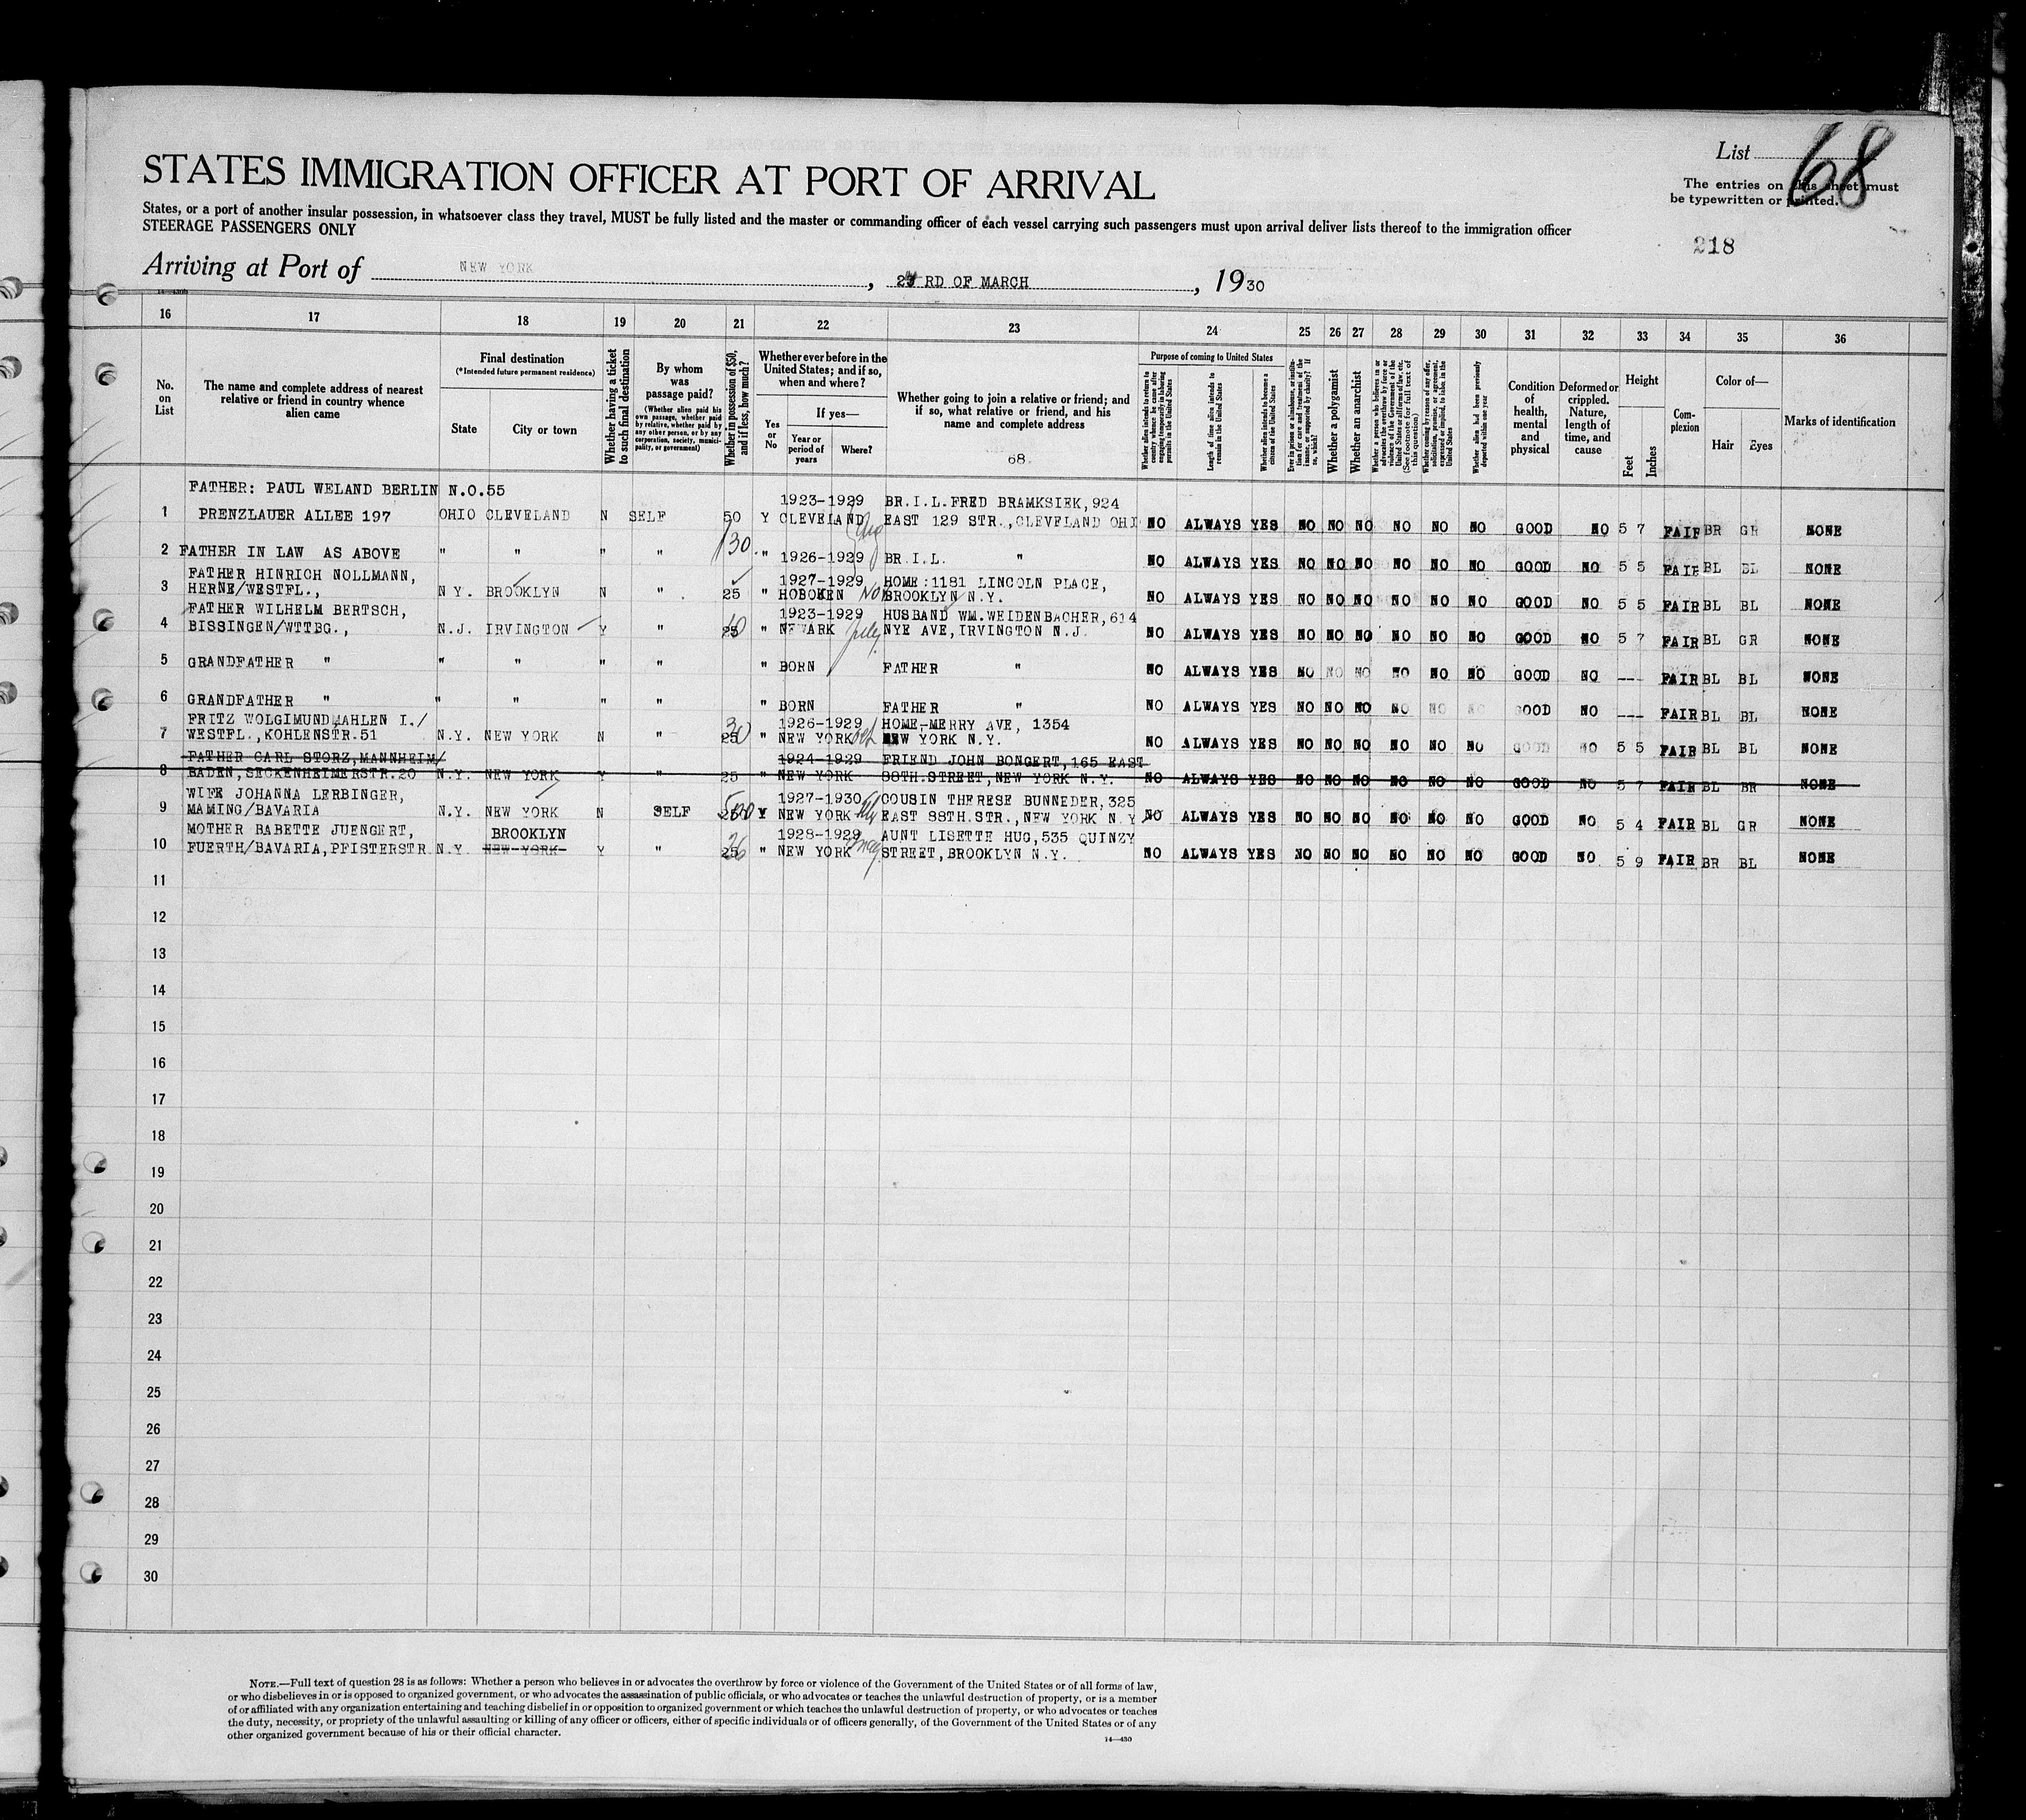 List 68
STATES IMMIGRATION OFFICER AT PORT OF ARRIVAL
The entries on this sheet must
be typewritten or printed.
States, or a port of another insular possession, in whatsoever class they travel, MUST be fully listed and the master or commanding officer of each vessel carrying such passengers must upon arrival deliver lists thereof to the immigration officer
STEERAGE PASSENGERS ONLY
218
Arriving at Port of NEW YORK, RD OF MARCH, 1930
16 17 18 19 20 21 22 23 24 25 26 27 28 29 30 31 32 33 34 35 36
No. on List
The name and complete address of nearest relative or friend in country whence alien came
Final destination
(*Intended future permanent residence)
State
City or town
Whether having a ticket to such final destination
By whom was passage paid?
(Whether alien paid his own passage, whether paid by relative, whether paid by any other person, or by any corporation, society, municipality, or government)
Whether in possession of $50, and if less, how much?
Whether ever before in the United States; and if so, when and where?
Yes or No
If yes—
Year or period of years
Where?
Whether going to join a relative or friend; and if so, what relative or friend, and his name and complete address
68
Purpose of coming to United States
Length of time alien intends to remain in the United States
Whether alien intends to become a citizen of the United States
Whether a polygamist
Whether an anarchist
(See footnote for full text of this question)
Whether alien had been previously deported within one year
Condition of health, mental and physical
Deformed or crippled. Nature, length of time, and cause
Height
Feet
Inches
Complexion
Color of—
Hair
Eyes
Marks of identification
FATHER: PAUL WELAND BERLIN N.O.55 1923-1929 BR.I.L.FRED BRAMKSIEK,924
1 PRENZLAUER ALLEE 197 OHIO CLEVELAND N SELF 50 Y CLEVELAND EAST 129 STR.,CLEVELAND OHI NO ALWAYS YES NO NO NO NO NO NO GOOD NO 5 7 FAIR BR GR NONE
130
2 FATHER IN LAW AS ABOVE " " " " " 1926-1929 BR.I.L. " NO ALWAYS YES NO NO NO NO NO NO GOOD NO 5 5 FAIR BL BL NONE
FATHER HINRICH NOLLMANN, 1927-1929 HOME:1181 LINCOLN PLACE,
3 HERNE/WESTFL., N Y. BROOKLYN N " 25 " HOBOKEN Nov BROOKLYN N.Y. NO ALWAYS YES NO NO NO NO NO NO GOOD NO 5 5 FAIR BL BL NONE
FATHER WILHELM BERTSCH, 1923-1929 HUSBAND WM.WEIDENBACHER,614
4 BISSINGEN/WTTBG., N.J. IRVINGTON Y " 25 " NEWARK July NYE AVE,IRVINGTON N.J. NO ALWAYS YES NO NO NO NO NO NO GOOD NO 5 7 FAIR BL GR NONE
5 GRANDFATHER " " " " " " BORN FATHER " NO ALWAYS YES NO NO NO NO NO NO GOOD NO --- FAIR BL BL NONE
6 GRANDFATHER " " " " " " BORN FATHER " NO ALWAYS YES NO NO NO NO NO NO GOOD NO --- FAIR BL BL NONE
FRITZ WOLGIMUND,AHLEN I./ 30 1926-1929 HOME-MERRY AVE, 1354
7 WESTFL.,KOHLENSTR.51 N.Y. NEW YORK N " 25 " NEW YORK NEW YORK N.Y. NO ALWAYS YES NO NO NO NO NO NO GOOD NO 5 5 FAIR BL BL NONE
FATHER CARL STORZ,MANNHEIM/ 1924-1929 FRIEND JOHN BONGERT,165 EAST
8 BADEN,SECKENHEIMERSTR.20 N.Y. NEW YORK Y " 25 " NEW YORK 88TH.STREET,NEW YORK N.Y. NO ALWAYS YES NO NO NO NO NO NO GOOD NO 5 7 FAIR BL BR NONE
WIFE JOHANNA LERBINGER, 1927-1930 COUSIN THERESE BUNNEDER,325
9 MAMING/BAVARIA N.Y. NEW YORK N SELF Y NEW YORK EAST 88TH.STR.,NEW YORK N.Y NO ALWAYS YES NO NO NO NO NO NO GOOD NO 5 4 FAIR BL GR NONE
MOTHER BABETTE JUENGERT, BROOKLYN 1928-1929 AUNT LISETTE HUG,535 QUINZY
10 FUERTH/BAVARIA,PFISTERSTR. N.Y NEW YORK Y " 25 " NEW YORK May STREET,BROOKLYN N.Y. NO ALWAYS YES NO NO NO NO NO NO GOOD NO 5 9 FAIR BR BL NONE
11
12
13
14
15
16
17
18
19
20
21
22
23
24
25
26
27
28
29
30
NOTE.—Full text of question 28 is as follows: Whether a person who believes in or advocates the overthrow by force or violence of the Government of the United States or of all forms of law,
or who disbelieves in or is opposed to organized government, or who advocates the assassination of public officials, or who advocates or teaches the unlawful destruction of property, or is a member
of or affiliated with any organization entertaining and teaching disbelief in or opposition to organized government or which teaches the unlawful destruction of property, or who advocates or teaches
the duty, necessity, or propriety of the unlawful assaulting or killing of any officer or officers, either of specific individuals or of officers generally, of the Government of the United States or of any
other organized government because of his or their official character.
14—430